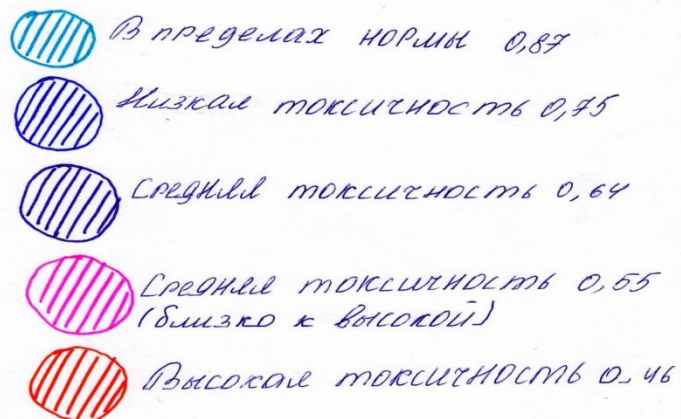 В пределах нормы 0,87
Низкая токсичность 0,75
Средняя токсичность 0,64
Средняя токсичность 0,55
(близко к высокой)
Высокая токсичность 0-46